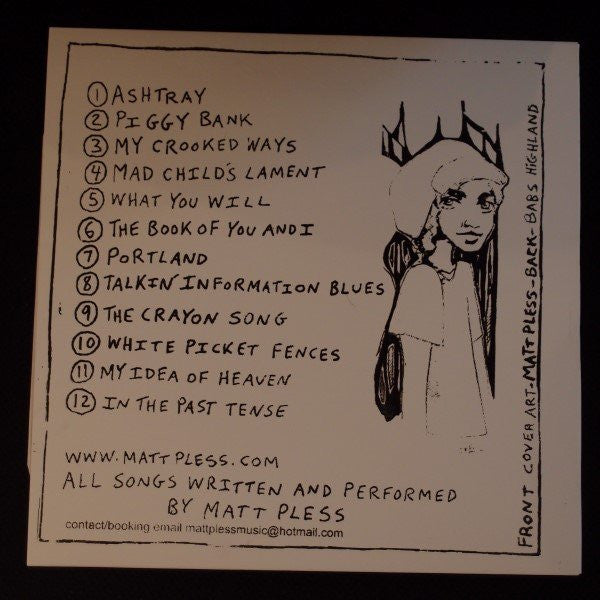 1 ASHTRAY
2 PIGGY BANK
3 MY CROOKED WAYS
4 MAD CHILD'S LAMENT
5 WHAT YOU WILL
6 THE BOOK OF YOU AND I
7 PORTLAND
8 TALKIN' INFORMATION BLUES
9 THE CRAYON SONG
10 WHITE PICKET FENCES
11 MY IDEA OF HEAVEN
12 IN THE PAST TENSE
WWW.MATTPLESS.COM
ALL SONGS WRITTEN AND PERFORMED
BY MATT PLESS
contact/booking email mattplessmusic@hotmail.com
FRONT COVER ART-MATT PLESS-BACK-BABS HIGHLAND